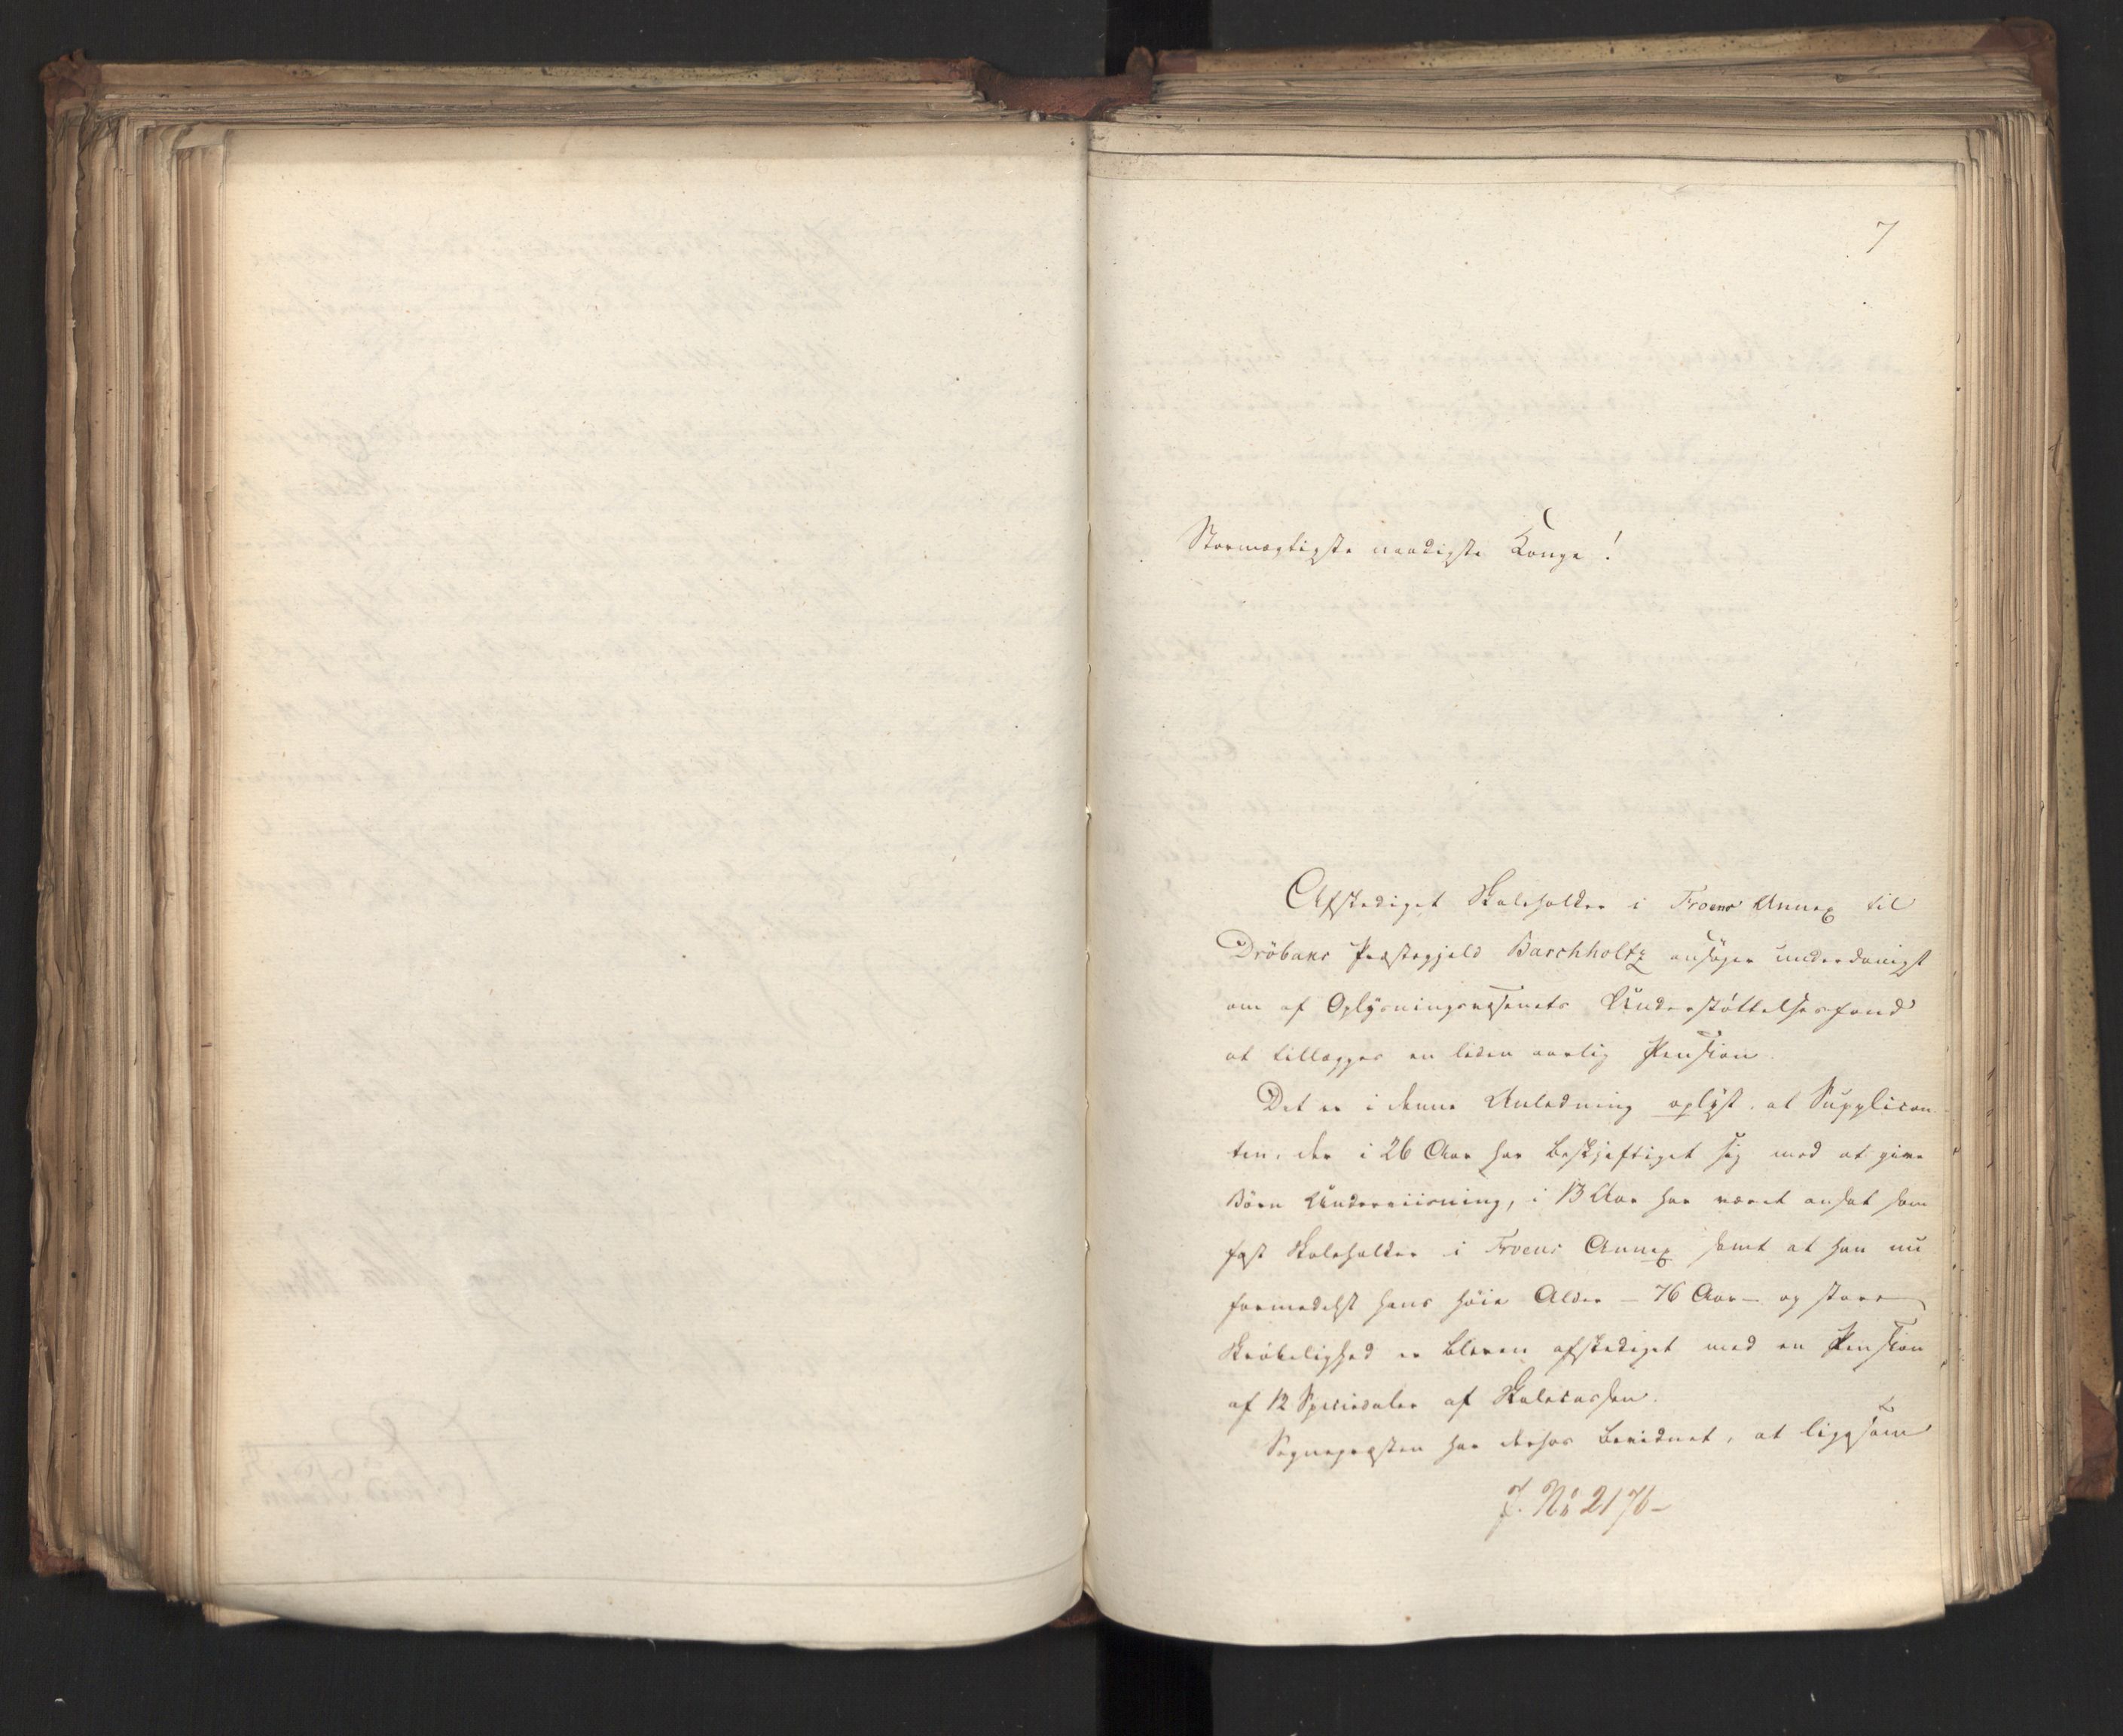 7
Stormægtigste naadigste Konge!
Afskediget Skoleholder i Froens Annex til
Dröbaks Præstegjeld Barchholtz ansøger underdanigst
om af Oplysningsvæsenets Understöttelsesfond
at tillægges en liden aarlig Pension.
Det er i denne Anledning oplyst, at Supplican-
ten, der i 26 Aar har beskjeftiget sig med at give
Börn Underviisning, i 13 Aar har været ansat som
fast Skoleholder i Froens Annex samt at han nu
formedelst hans höie Alder - 76 Aar - og store
Skröbelighed er bleven afskediget med en Pension
af 12 Speciedaler af Skolecassen.
Sognepræsten har derhos bevidnet, at ligesom
J. No 2176-